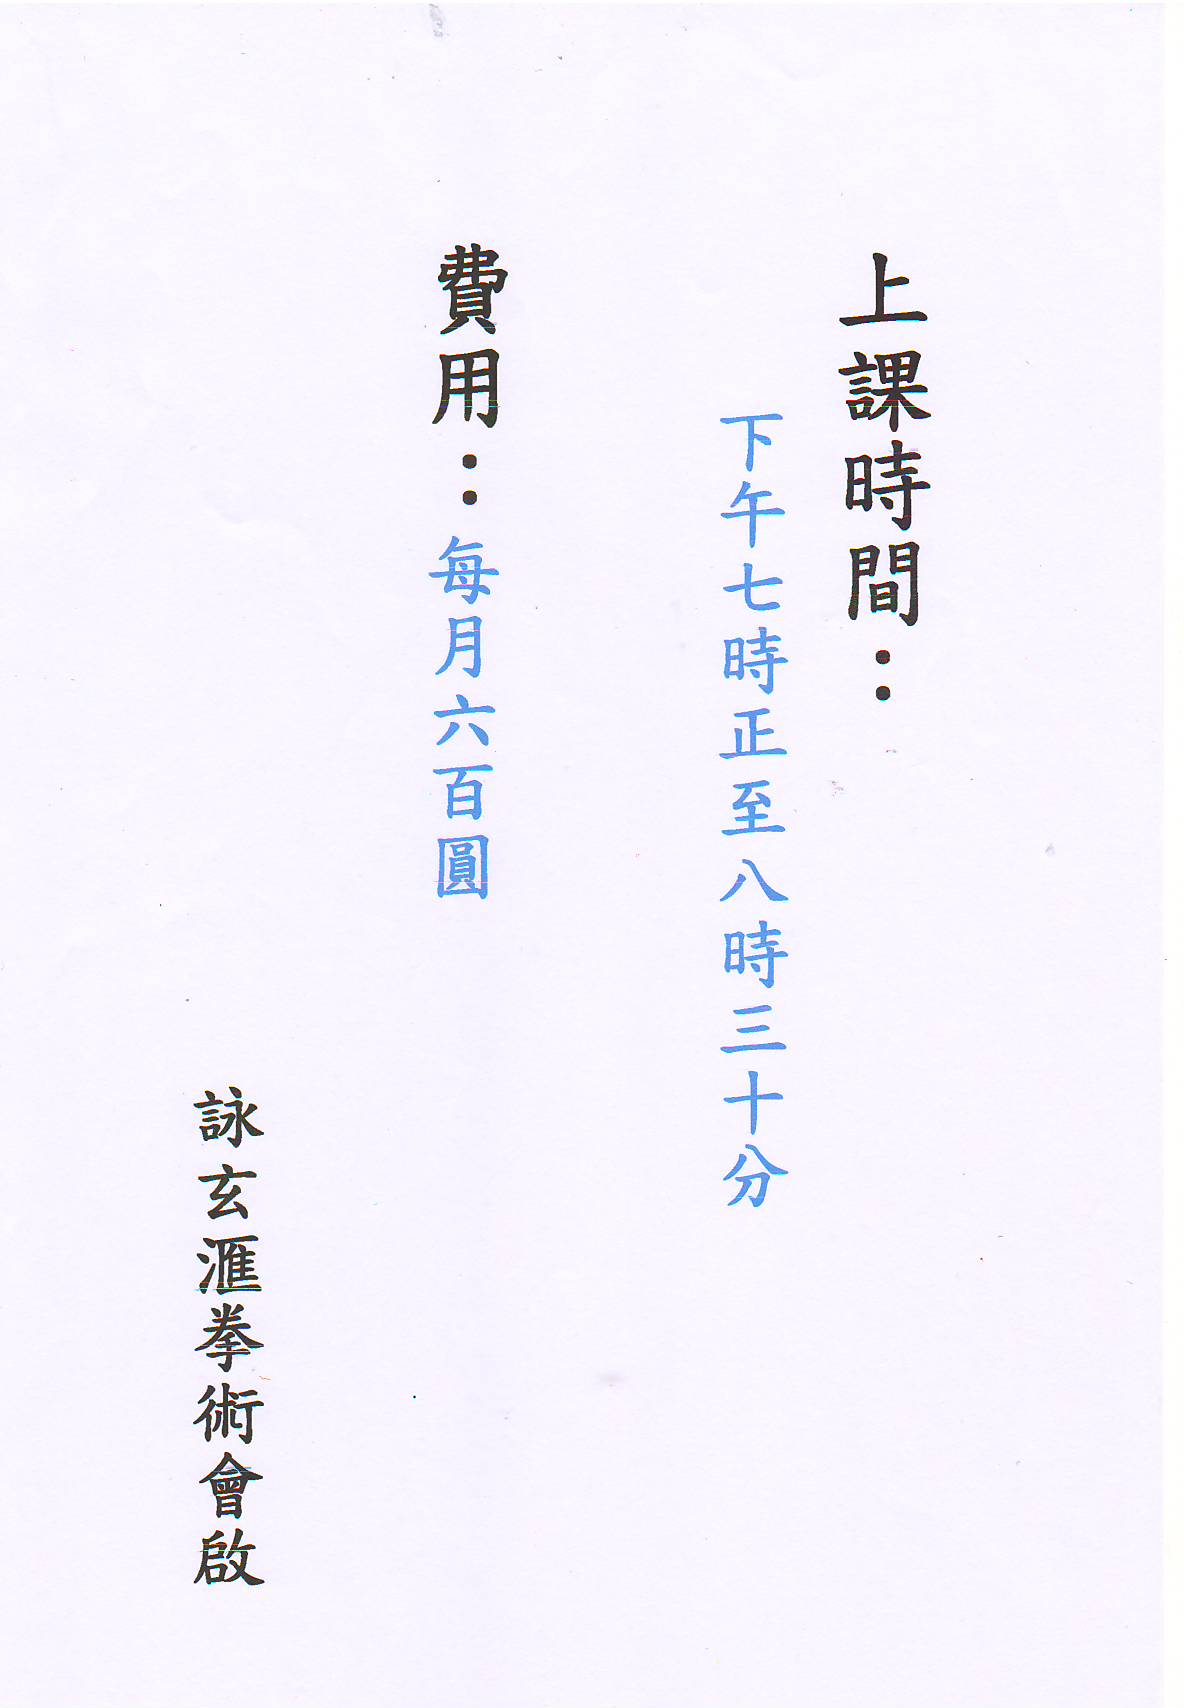 上課時間：
下午七時正至八時三十分
費用：每月六百圓
詠玄滙拳術會啟